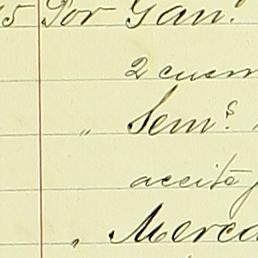 15 Por Gan.
2 cuen
" Sem.s
aceite
" Merca